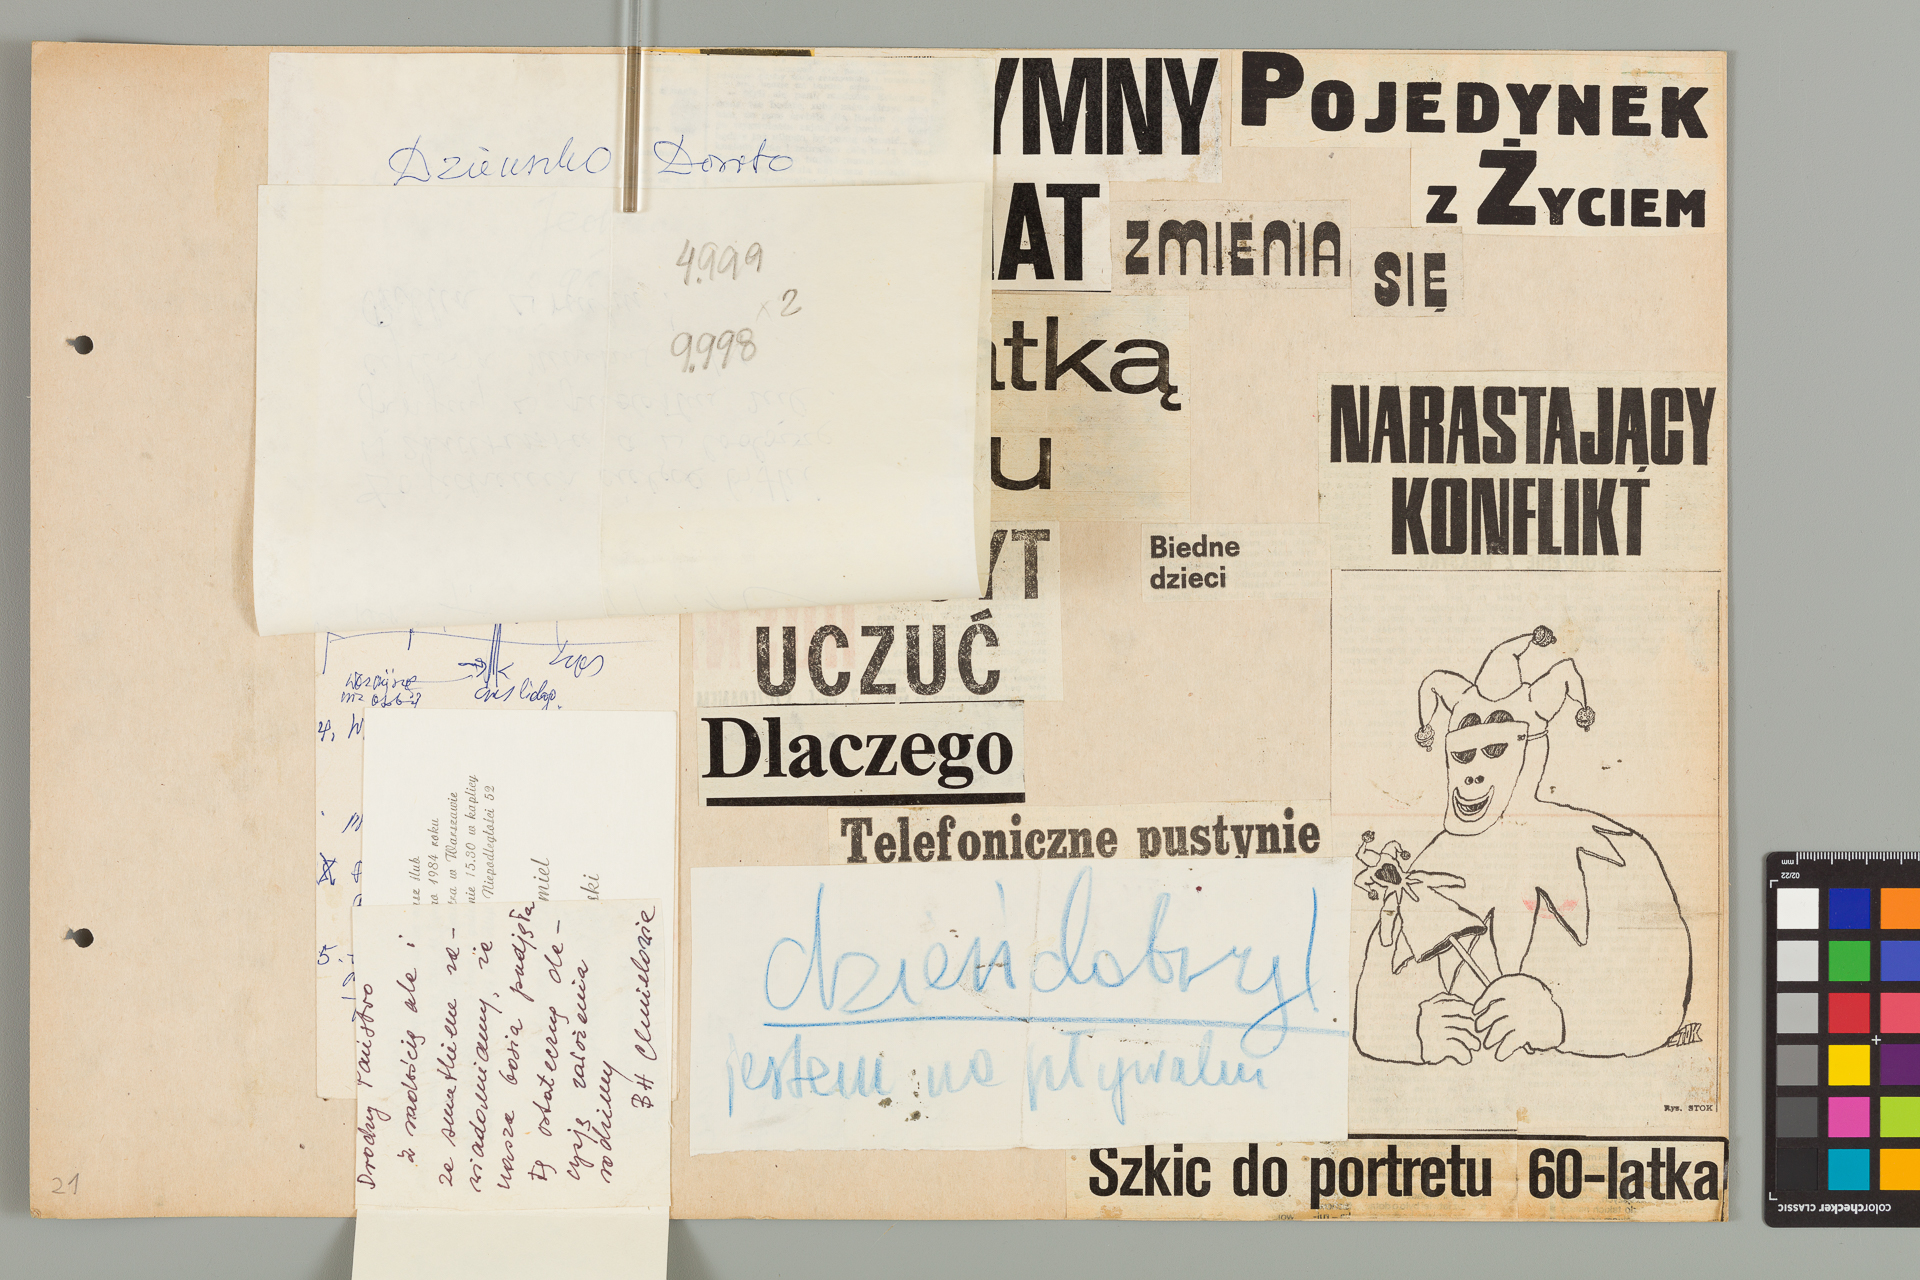 Dziewko Dorota
4.999
x2
9.998
YMNY
AT
ZMIENIA
SIĘ
atką
u
YT
UCZUĆ
Dlaczego
Telefoniczne pustynie
dzień dobry!
jestem na pływalni
POJEDYNEK
Z ŻYCIEM
NARASTAJĄCY
KONFLIKT
Biedne
dzieci
Rys. STOK
Szkic do portretu 60-latka
4.
5.
ślub
1984 roku
w Warszawie
15.30 w kaplicy
Niepodległości 52
miel
ski
Drodzy Państwo
z radością ale i
ze smutkiem za-
wiadamiamy, że
nasza Basia podjęła
tę ostateczną de-
cyzję założenia
rodziny
BH Chmielowie
21
colorchecker CLASSIC
mm
02/22